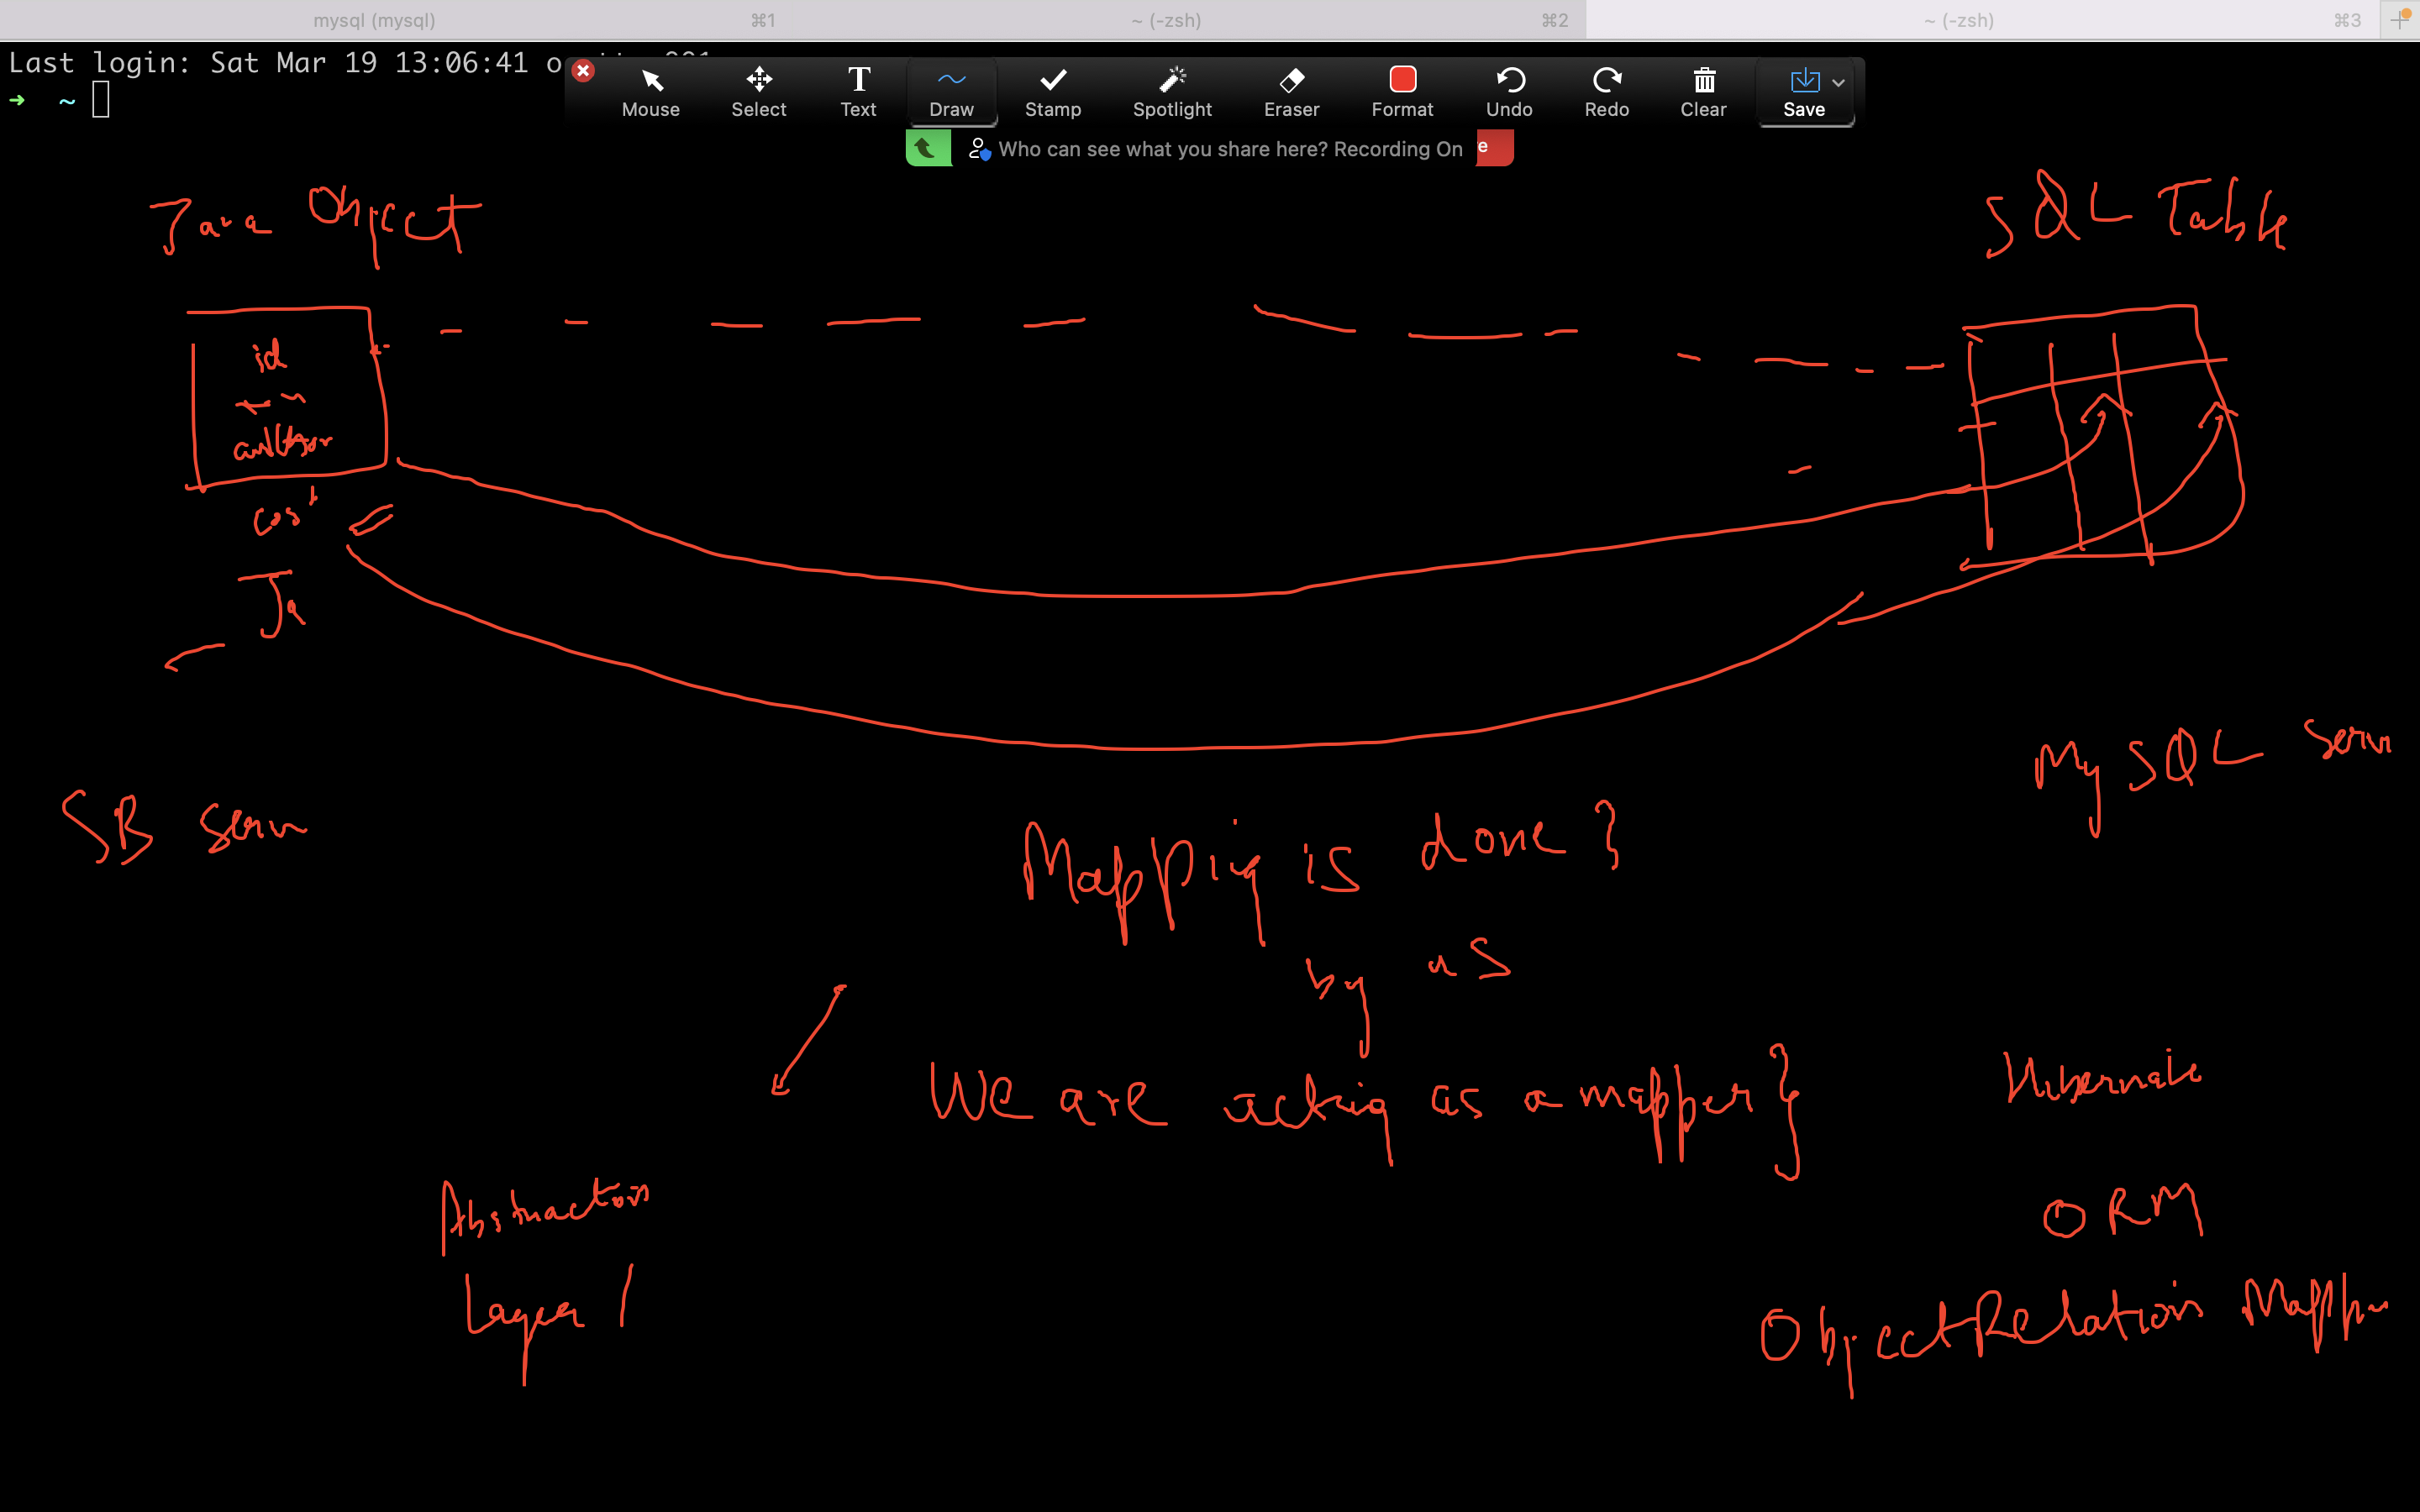 mysql (mysql) ⌘1 ~ (-zsh) ⌘2 ~ (-zsh) ⌘3
Last login: Sat Mar 19 13:06:41 o
➜ ~
Mouse Select Text Draw Stamp Spotlight Eraser Format Undo Redo Clear Save
Who can see what you share here? Recording On
Java Object
SQL Table
id
author
cost
Ja
SB Serv
My SQL Serv
Mapping is done }
by us
We are acting as a mapper }
Hibernate
Abstraction
Layer
ORM
Object Relation Mapper